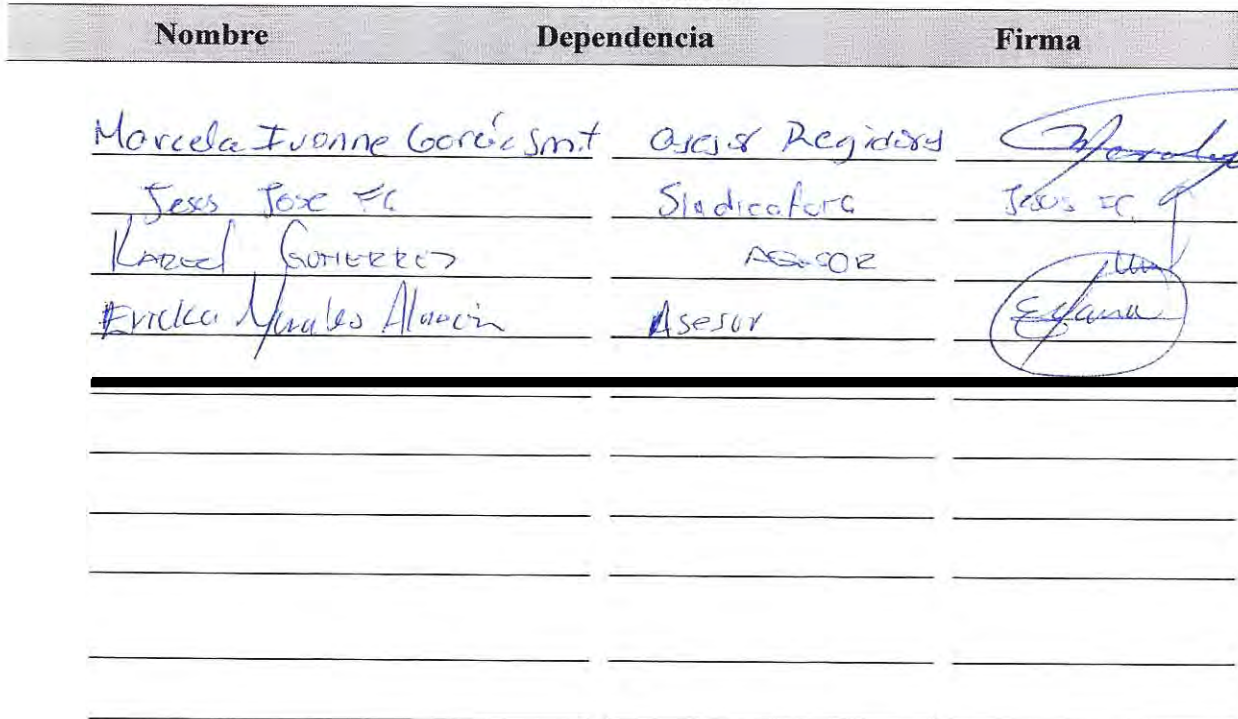 Nombre Dependencia Firma
Marcela Ivonne García Smit Asesor Regidores
Jesus Jose FC Sindicatura Jesus FC
Karel Gutierrez Asesor
Ericka Morales Alarcón Asesor